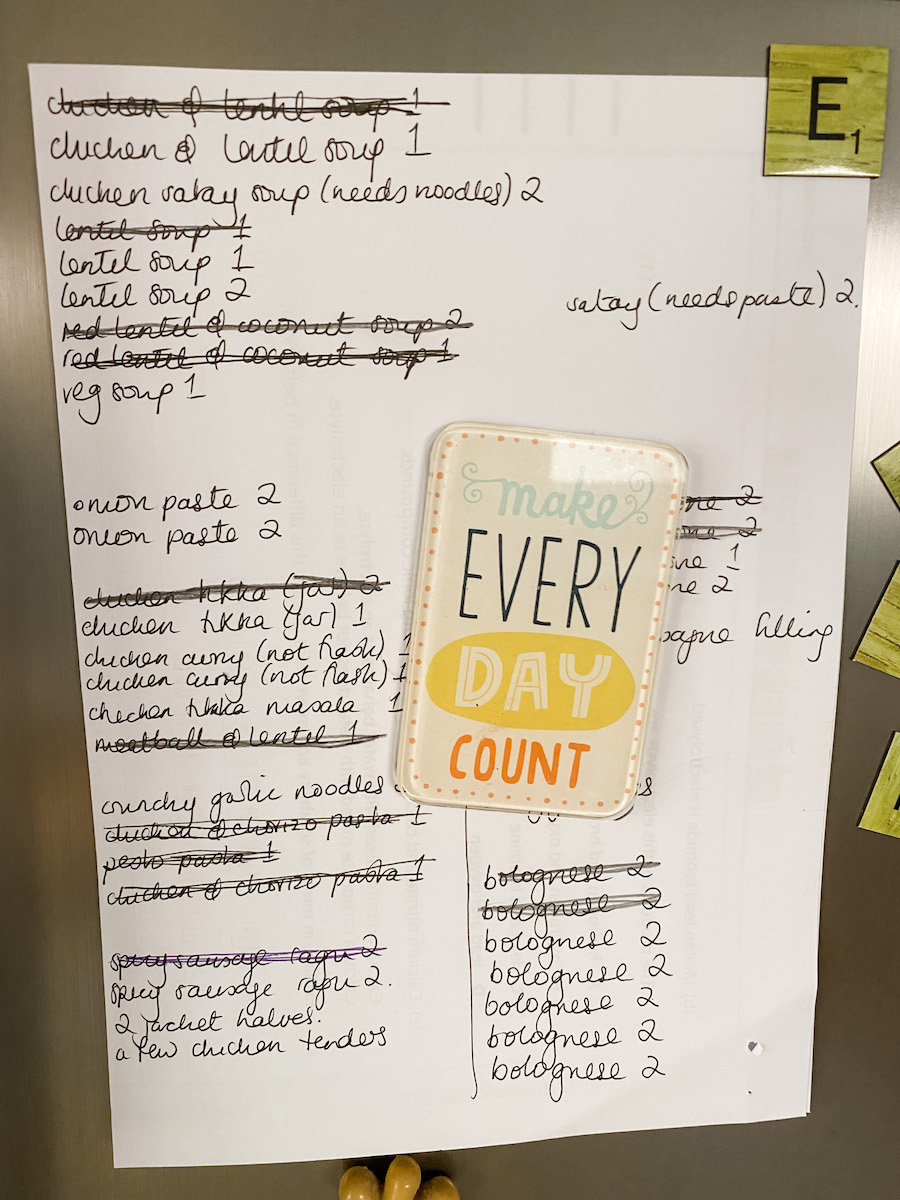 chicken & lentil soup 1
chicken & lentil soup 1
chicken satay soup (needs noodles) 2
lentil soup 1
lentil soup 1
lentil soup 2
red lentil & coconut soup 2
red lentil & coconut soup 1
veg soup 1
onion paste 2
onion paste 2
chicken tikka (jar) 2
chicken tikka (jar) 1
chicken curry (not flash) 1
chicken curry (not flash) 1
chicken tikka masala 1
meatball & lentil 1
crunchy garlic noodles
chicken & chorizo pasta 1
pesto pasta 1
chicken & chorizo pasta 1
spicy sausage ragu 2
spicy sausage ragu 2.
2 jacket halves.
a few chicken tenders
satay (needs paste) 2.
ne 2
ne 2
ne 1
ne 2
filling
bolognese 2
bolognese 2
bolognese 2
bolognese 2
bolognese 2
bolognese 2
bolognese 2
make
EVERY
DAY
COUNT
E1